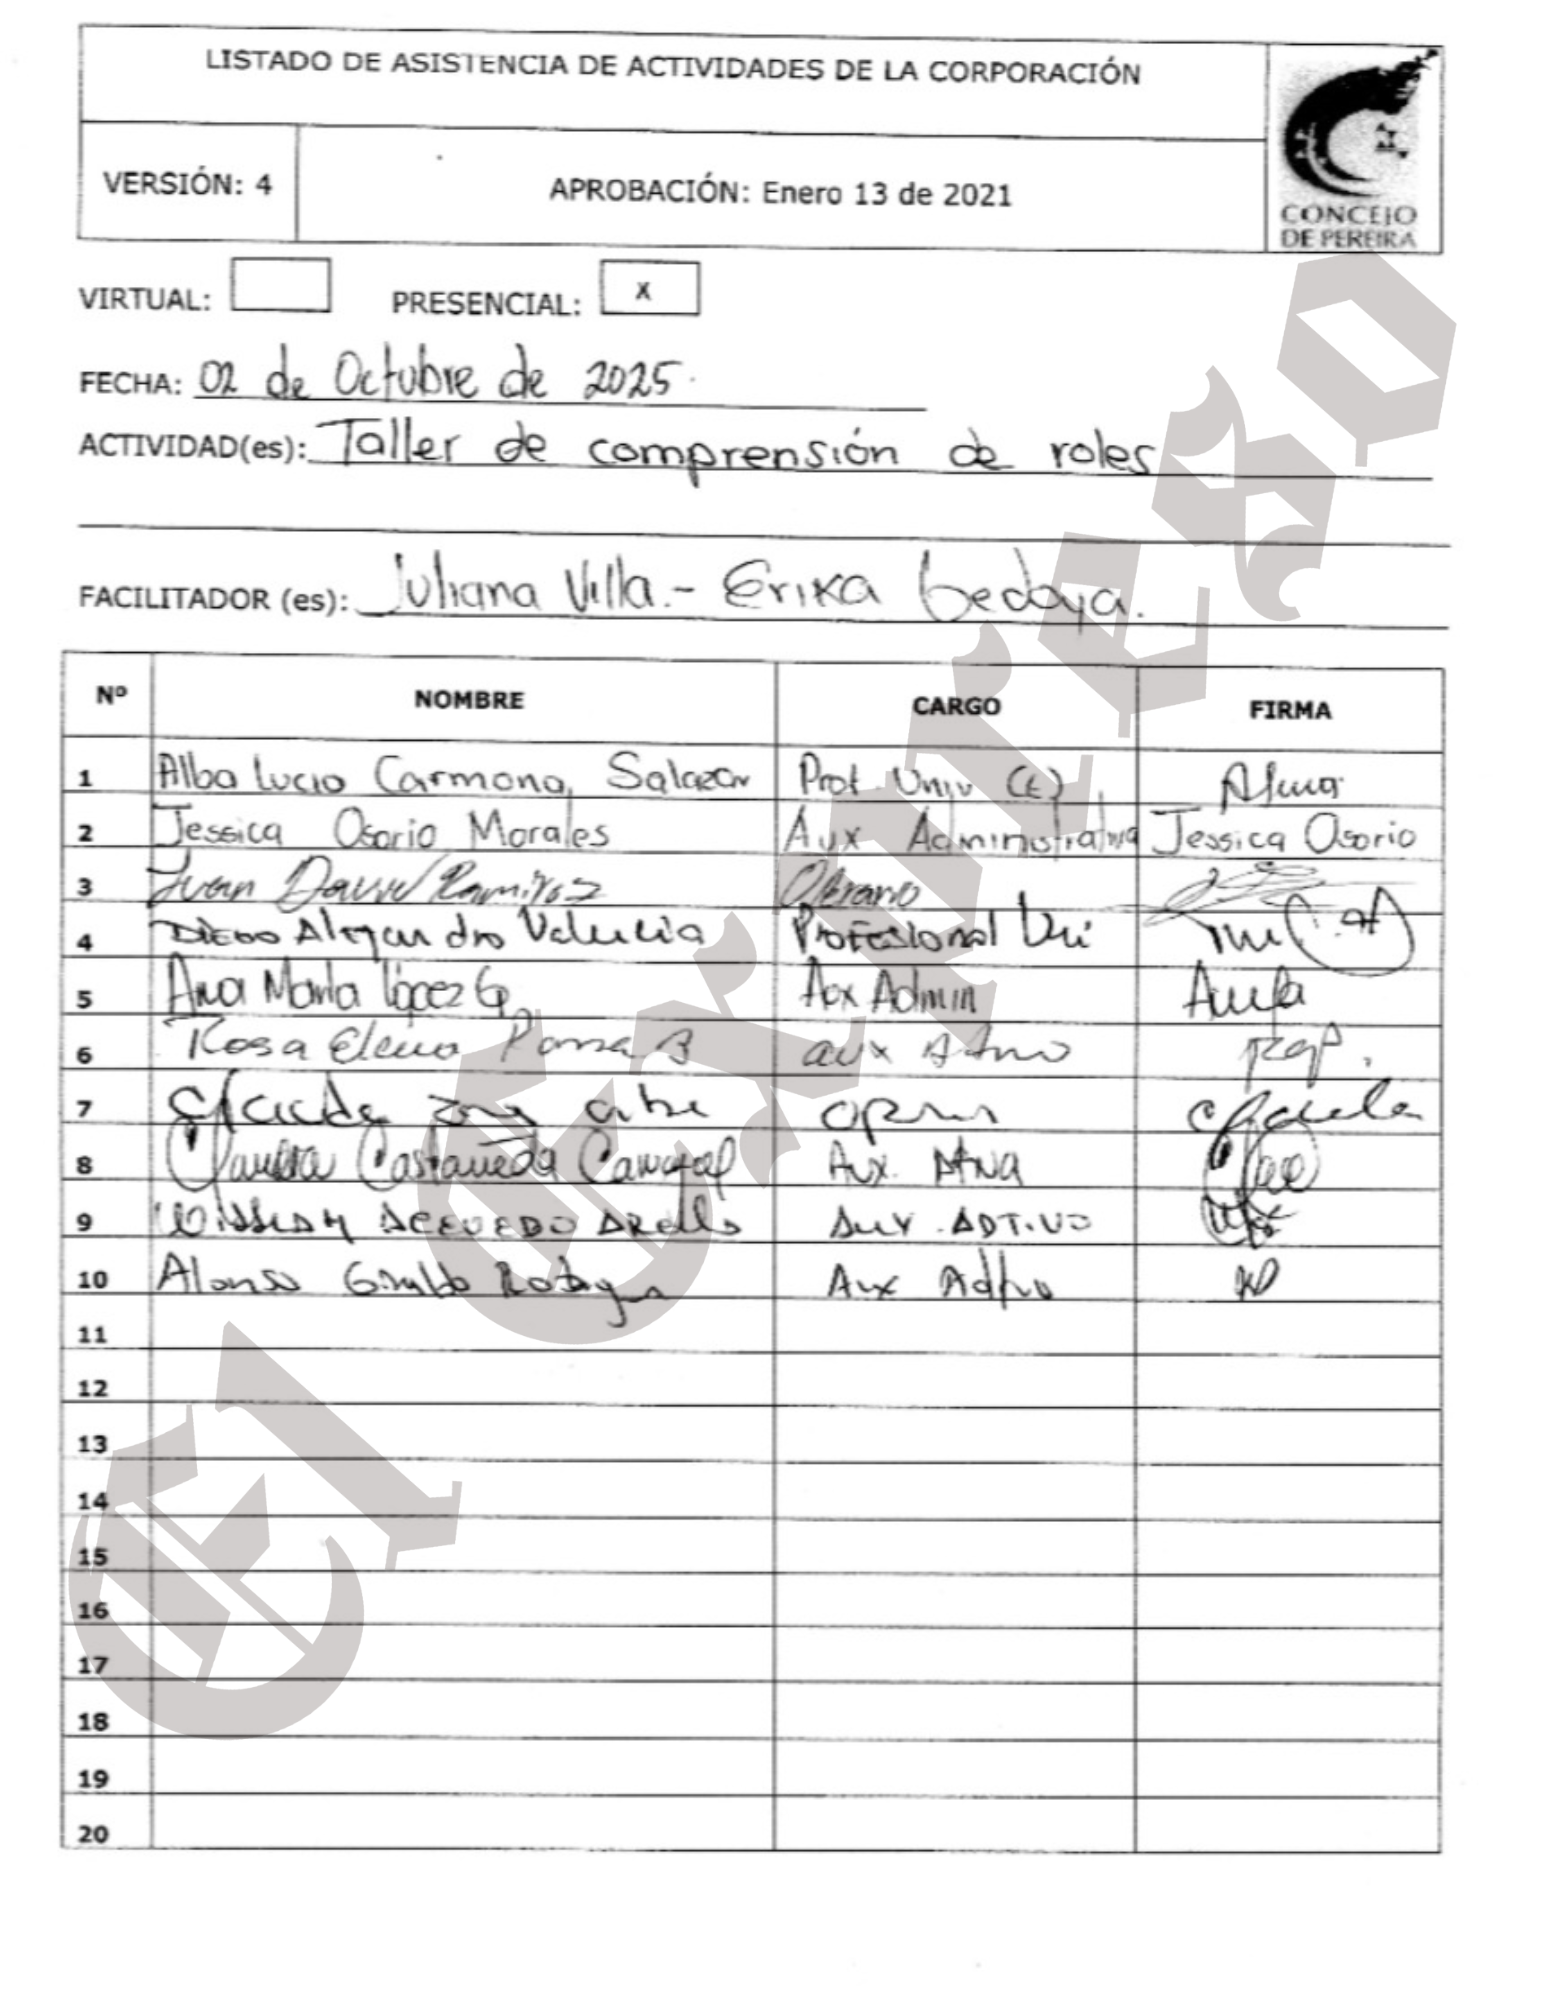 LISTADO DE ASISTENCIA DE ACTIVIDADES DE LA CORPORACIÓN
VERSIÓN: 4 APROBACIÓN: Enero 13 de 2021
CONCEJO
DE PEREIRA
VIRTUAL: PRESENCIAL: X
FECHA: 02 de Octubre de 2025.
ACTIVIDAD(es): Taller de comprensión de roles
FACILITADOR (es): Juliana Villa.- Erika Bedoya.
Nº NOMBRE CARGO FIRMA
1 Alba Lucia Carmona Salazar Prof. Univ (E)
2 Jessica Osorio Morales Aux Administrativa Jessica Osorio
3 Juan David Ramirez Operario
4 Diego Alejandro Valencia Profesional Uni
5 Ana María López G Aux Admin
6 Rosa Elena Parra B aux Admo
7
8 Claudia Castañeda Carvajal Aux.
9 William Acevedo Aux. ADTIVO
10 Alonso Giraldo Aux Adtvo
11
12
13
14
15
16
17
18
19
20
El Expreso